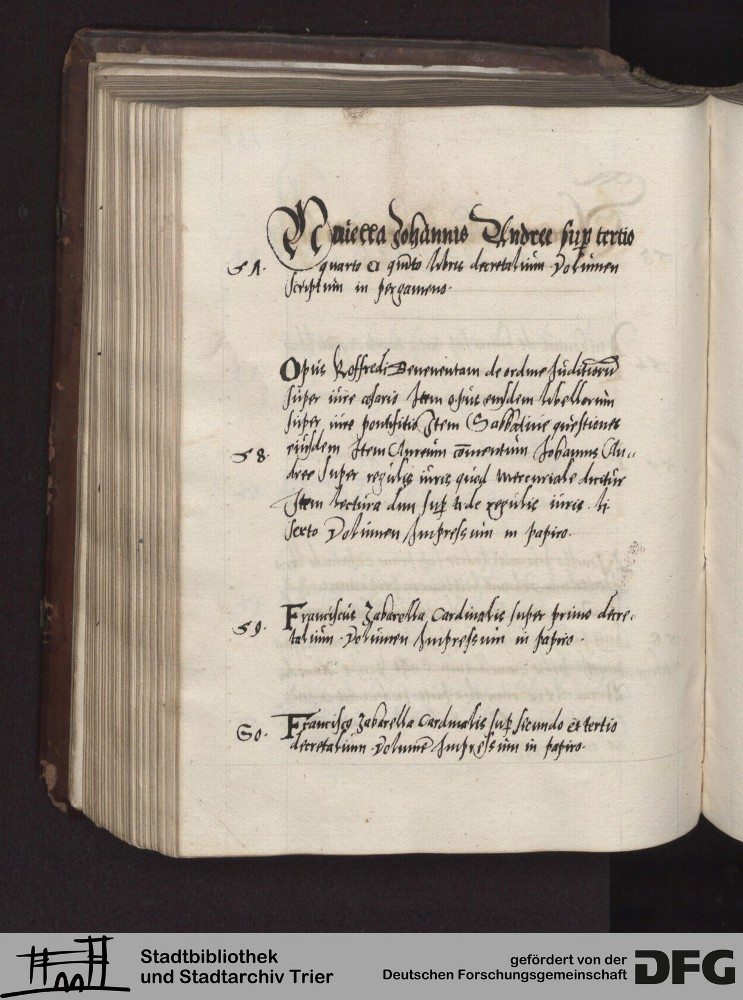 Nouella Johannis Andree sup tertio
51. quarto et quinto libris decretalium. Volumen
scriptum in pergameno.
Opus Roffredi Beneuentani de ordine Iuditiorum
super iure cesario Item opus eiusdem libellorum
super iure pontifitio Item Sabbatine questiones
58. eiusdem Item Aureum comentum Johannis An-
dree super regulis iuris quod mercuriale dicitur
Item lectura sup regulis iuris. li
sexto Volumen Impressum in papiro.
Franciscus Zabarella Cardinalis super primo decre-
59. talium. Volumen Impressum in papiro.
60. Francisco Zabarella Cardinalis sup secundo et tertio
decretalium. Volume Impressum in papiro.
Stadtbibliothek
und Stadtarchiv Trier
gefördert von der
Deutschen Forschungsgemeinschaft
DFG